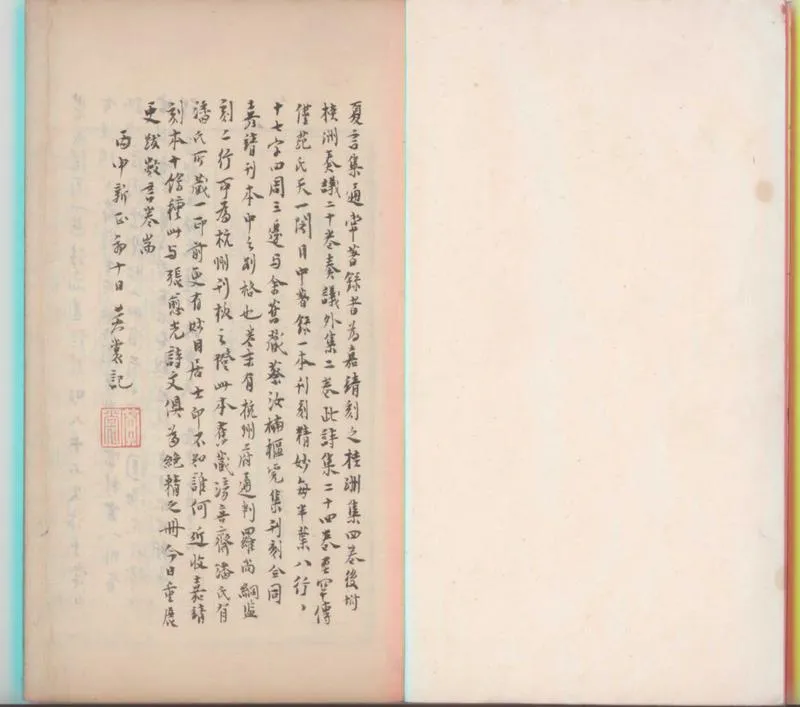 夏言集通常著錄者為嘉靖刻之桂洲集四卷後坿
桂洲奏議二十卷奏議外集二卷此詩集二十四卷至罕傳
僅范氏天一閣目中著錄一本刊刻精妙每半葉八行、
十七字四周三邊与余舊藏蔡汝楠樞筦集刊刻全同
嘉靖刊本中之別格也卷末有杭州府通判羅尚絅監
刻二行可為杭州刊板之證此本舊藏滂喜齋潘氏有
潘氏所藏一印前更有妙目居士印不知誰何近收嘉靖
刻本十餘種此与張愈光詩文俱為絕精之冊今日重展
更跋數言卷耑
丙申新正初十日 黃裳記
黃裳